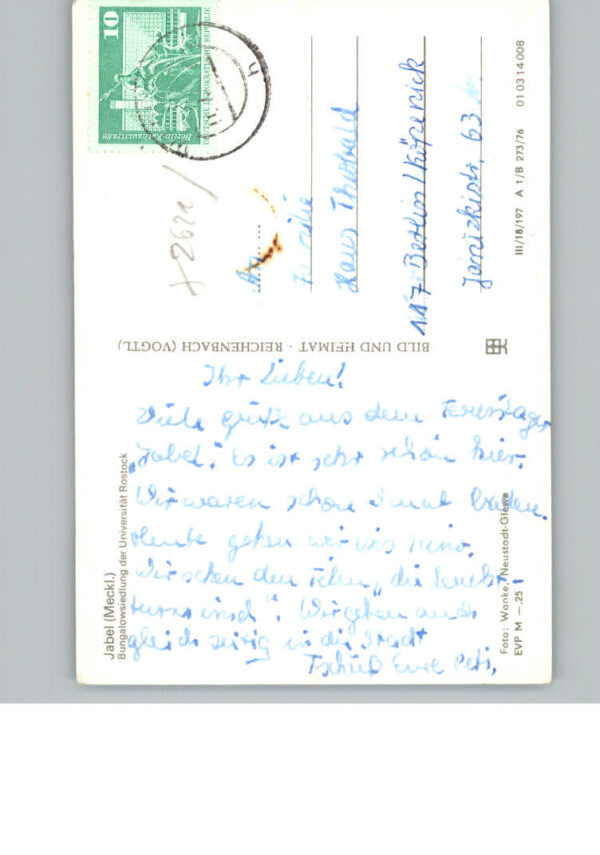 10
DEUTSCHE DEMOKRATISCHE REPUBLIK
Berlin-Rathausstraße
An
Familie
Hans Theobald
117 Berlin/Köpenick
Janitzkistr. 63
III/18/197 A 1/B 273/76 01 03 14 008
BILD UND HEIMAT · REICHENBACH (VOGTL)
Ihr Lieben!
Viele Grüße aus dem Ferienlager
"Jabel". Es ist sehr schön hier.
Wir waren schon 3 mal baden.
Heute gehen wir ins Kino.
Wir sehen den Film "die
". Wir gehen auch
gleichzeitig in die Stadt
Tschüß Eure
Jabel (Meckl.)
Bungalowsiedlung der Universität Rostock
Foto: Wanke, Neustadt-Glewe
EVP M —.25